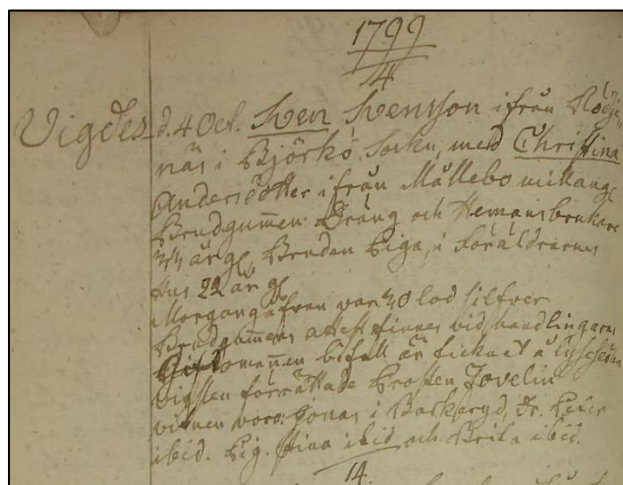 1799
4
Vigdes d. 4 Oct. Sven Svensson ifrån Rödje
näs i Björkö Sockn, med Christina
Andersdotter ifrån Mållebo mellang
Brudgummen Dräng och Hemansbrukare
år gl, Bruden Piga, i Föräldrarnes
Hus 22 år gl
Morgongåfvan var 30 lod silfver
Brudgummens attest finnes vid handlingarne
Giftomannen bifall är
vigslen förrättade Prosten Jovelin
vittnen voro: Jonas i Dr. Peter
ibid. Pig. Stina ibid och Brita ibid.
14.